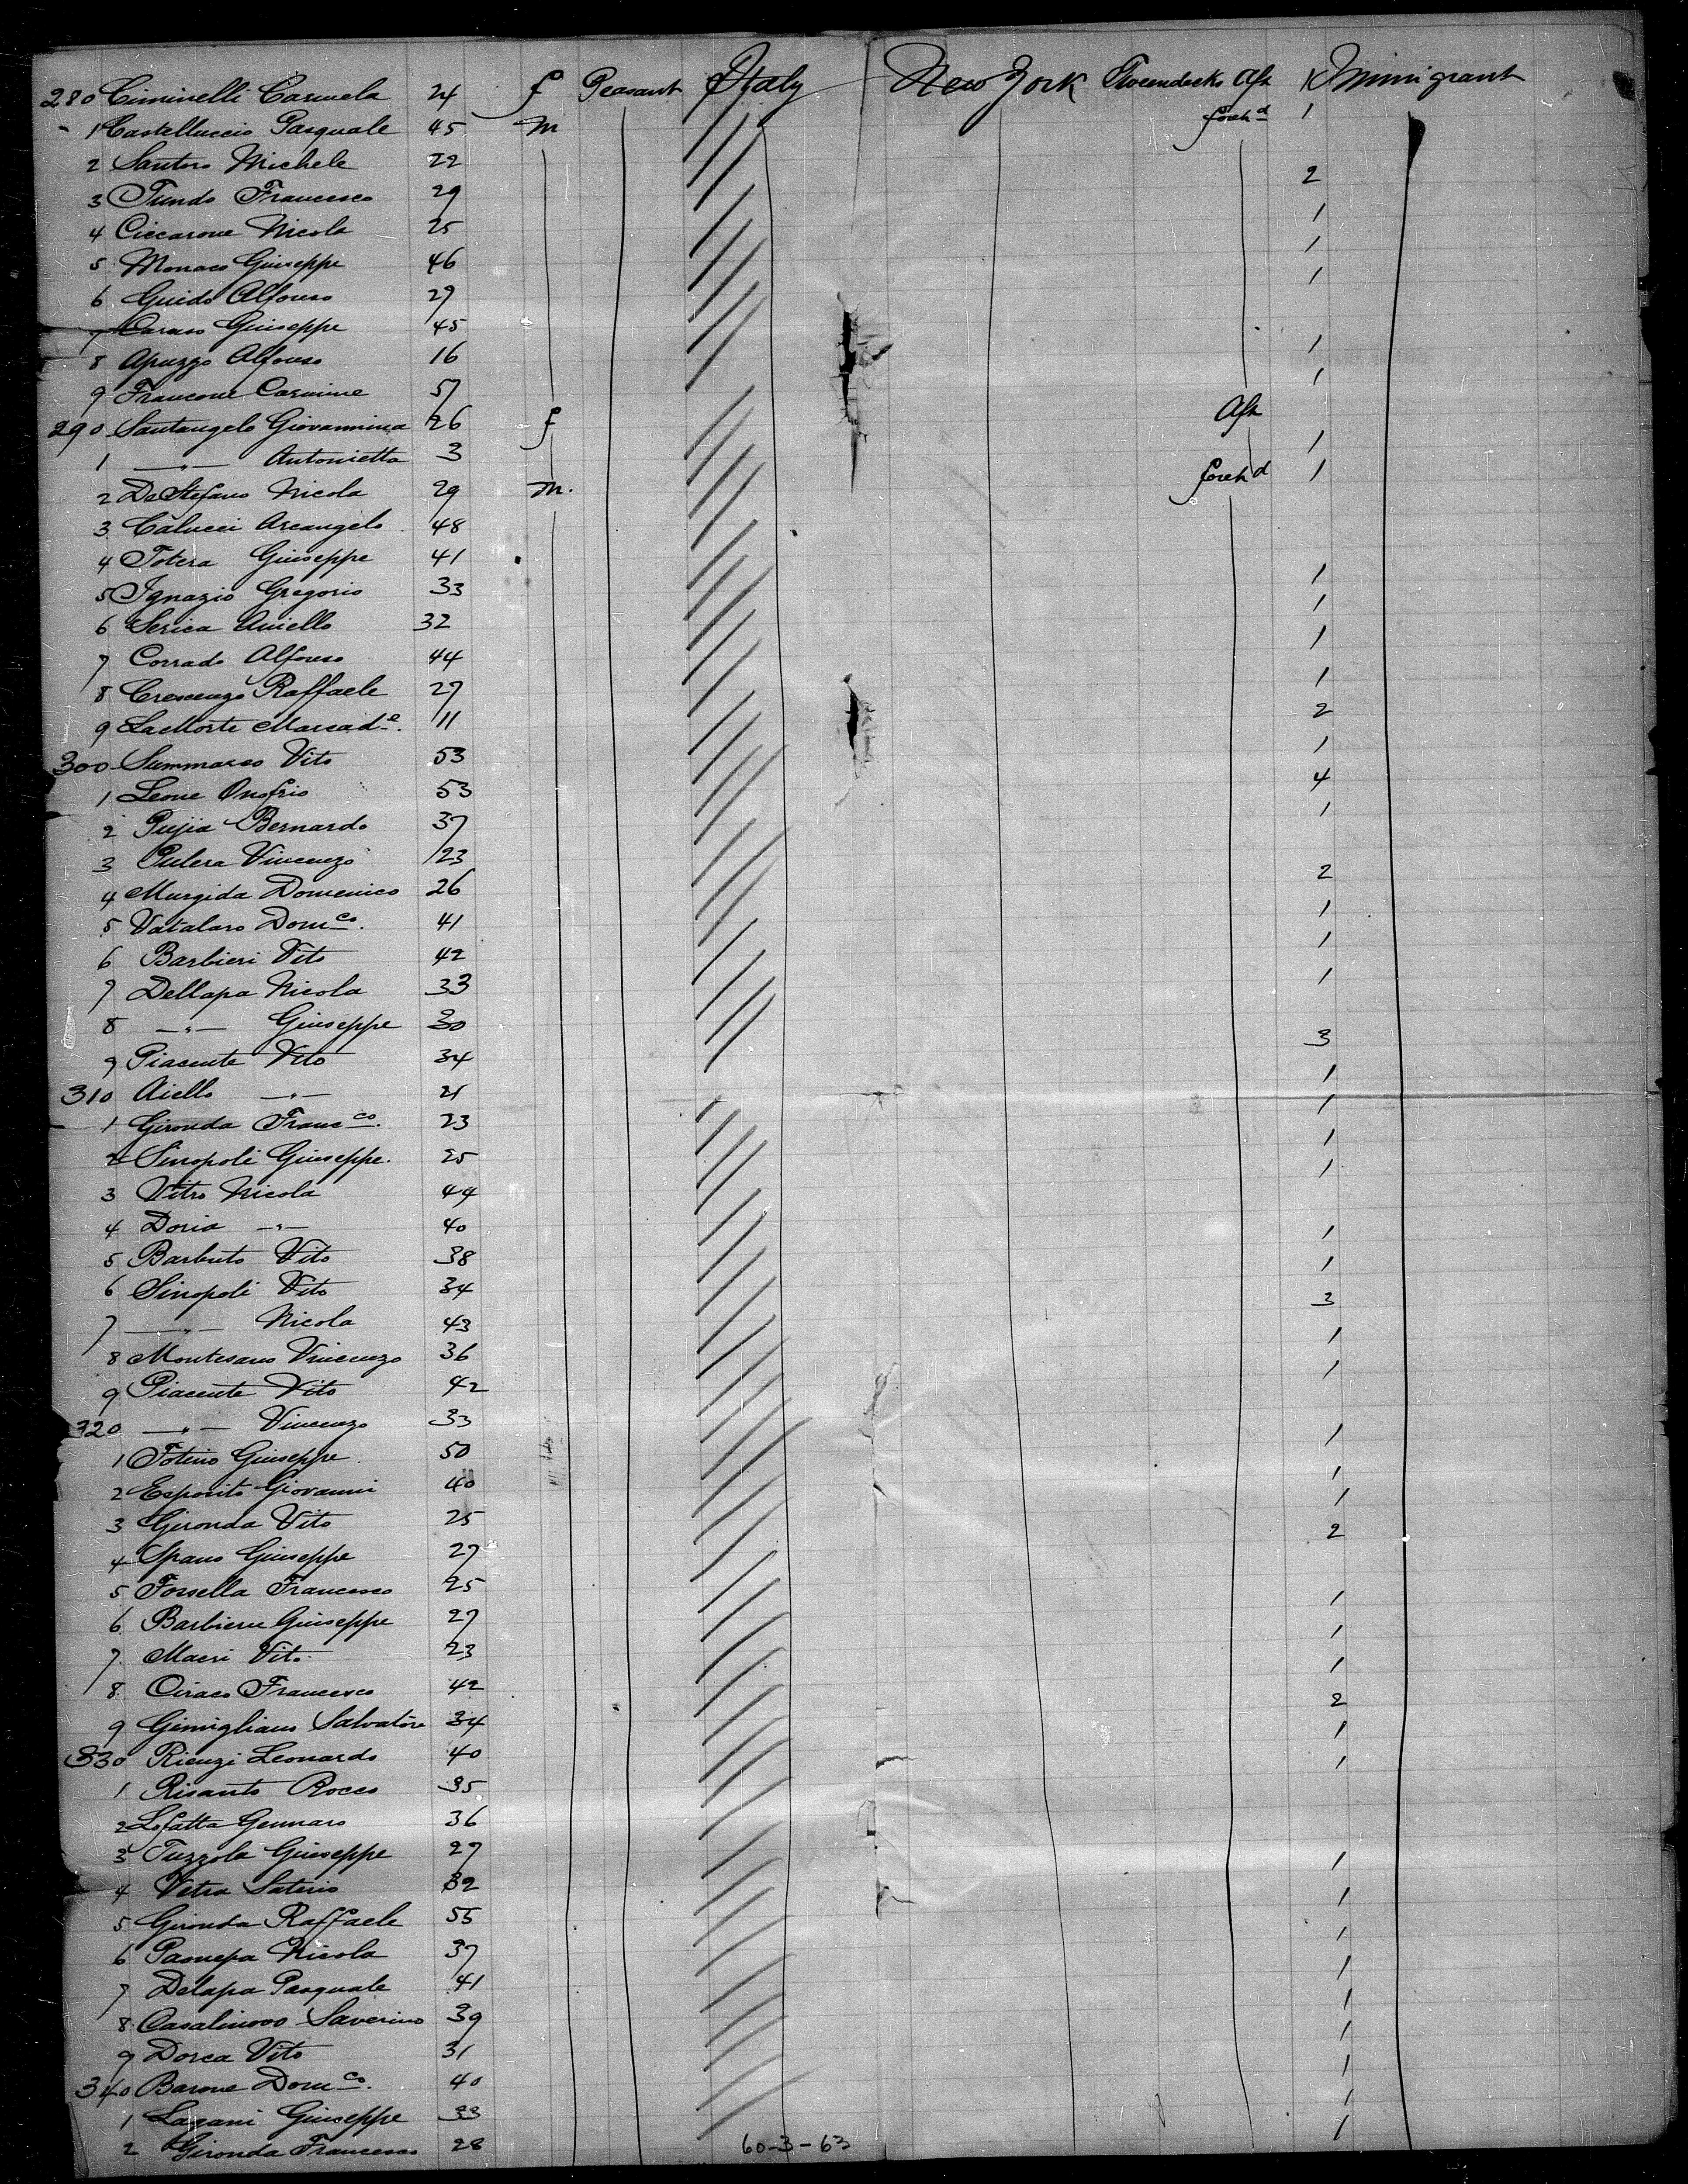 280 Ciminelli Carmela 24 f Peasant Italy New York Tweendecks Aft 1 Immigrant
1 Castelluccio Pasquale 45 m forehd 1
2 Santoro Michele 22
3 Tundo Francesco 29 2
4 Ciccarone Nicola 25 1
5 Monaco Giuseppe 46 1
6 Guido Alfonso 29 1
7 Caruso Giuseppe 45
8 Apuzzo Alfonso 16 1
9 Francone Carmine 57 1
290 Santangelo Giovannina 26 f Aft
1 —"— Antonietta 3 1
2 DeStefano Nicola 29 m. forehd 1
3 Calucci Arcangelo 48
4 Totera Giuseppe 41
5 Ignazio Gregorio 33 1
6 Serica Aniello 32 1
7 Corrado Alfonso 44 1
8 Crescenzo Raffaele 27 1
9 LaMorte 11 2
300 Summarco Vito 53 1
1 Leone Onofrio 53 4
2 Pujia Bernardo 37 1
3 Pulera Vincenzo 23
4 Murgida Domenico 26 2
5 Vatalaro Domco. 41 1
6 Barbieri Vito 42 1
7 Dellapa Nicola 33 1
8 —"— Giuseppe 30
9 Piacente Vito 34 3
310 Aiello —"— 21 1
1 Gironda Francco. 23 1
2 Sinopoli Giuseppe. 25 1
3 Vitro Nicola 44 1
4 Doria —"— 40
5 Barbuto Vito 38 1
6 Sinopoli Vito 34 1
7 —"— Nicola 43 3
8 Montesano Vincenzo 36 1
9 Piacente Vito 42 1
320 —"— Vincenzo 33
1 Fotino Giuseppe 50 1
2 Esposito Giovanni 40 1
3 Gironda Vito 25 1
4 Spano Giuseppe 27 2
5 Torsella Francesco 25
6 Barbieru Giuseppe 27 1
7 Macri Vito 23 1
8 Ciraco Francesco 42 1
9 Gimigliano Salvatore 34 2
330 Rienzi Leonardo 40 1
1 Risanto Rocco 35 1
2 Lofatta Gennaro 36
3 Tuzzola Giuseppe 27
4 Vetra Saterio 32 1
5 Gironda Raffaele 55 1
6 Nicola 37 1
7 Delapa Pasquale 41 1
8 Casalinovo Saverino 39 1
9 Dorca Vito 31 1
340 Barone Domco. 40 1
1 Lagani Giuseppe 33 1
2 Gironda Francesco 28 1
60-3-63